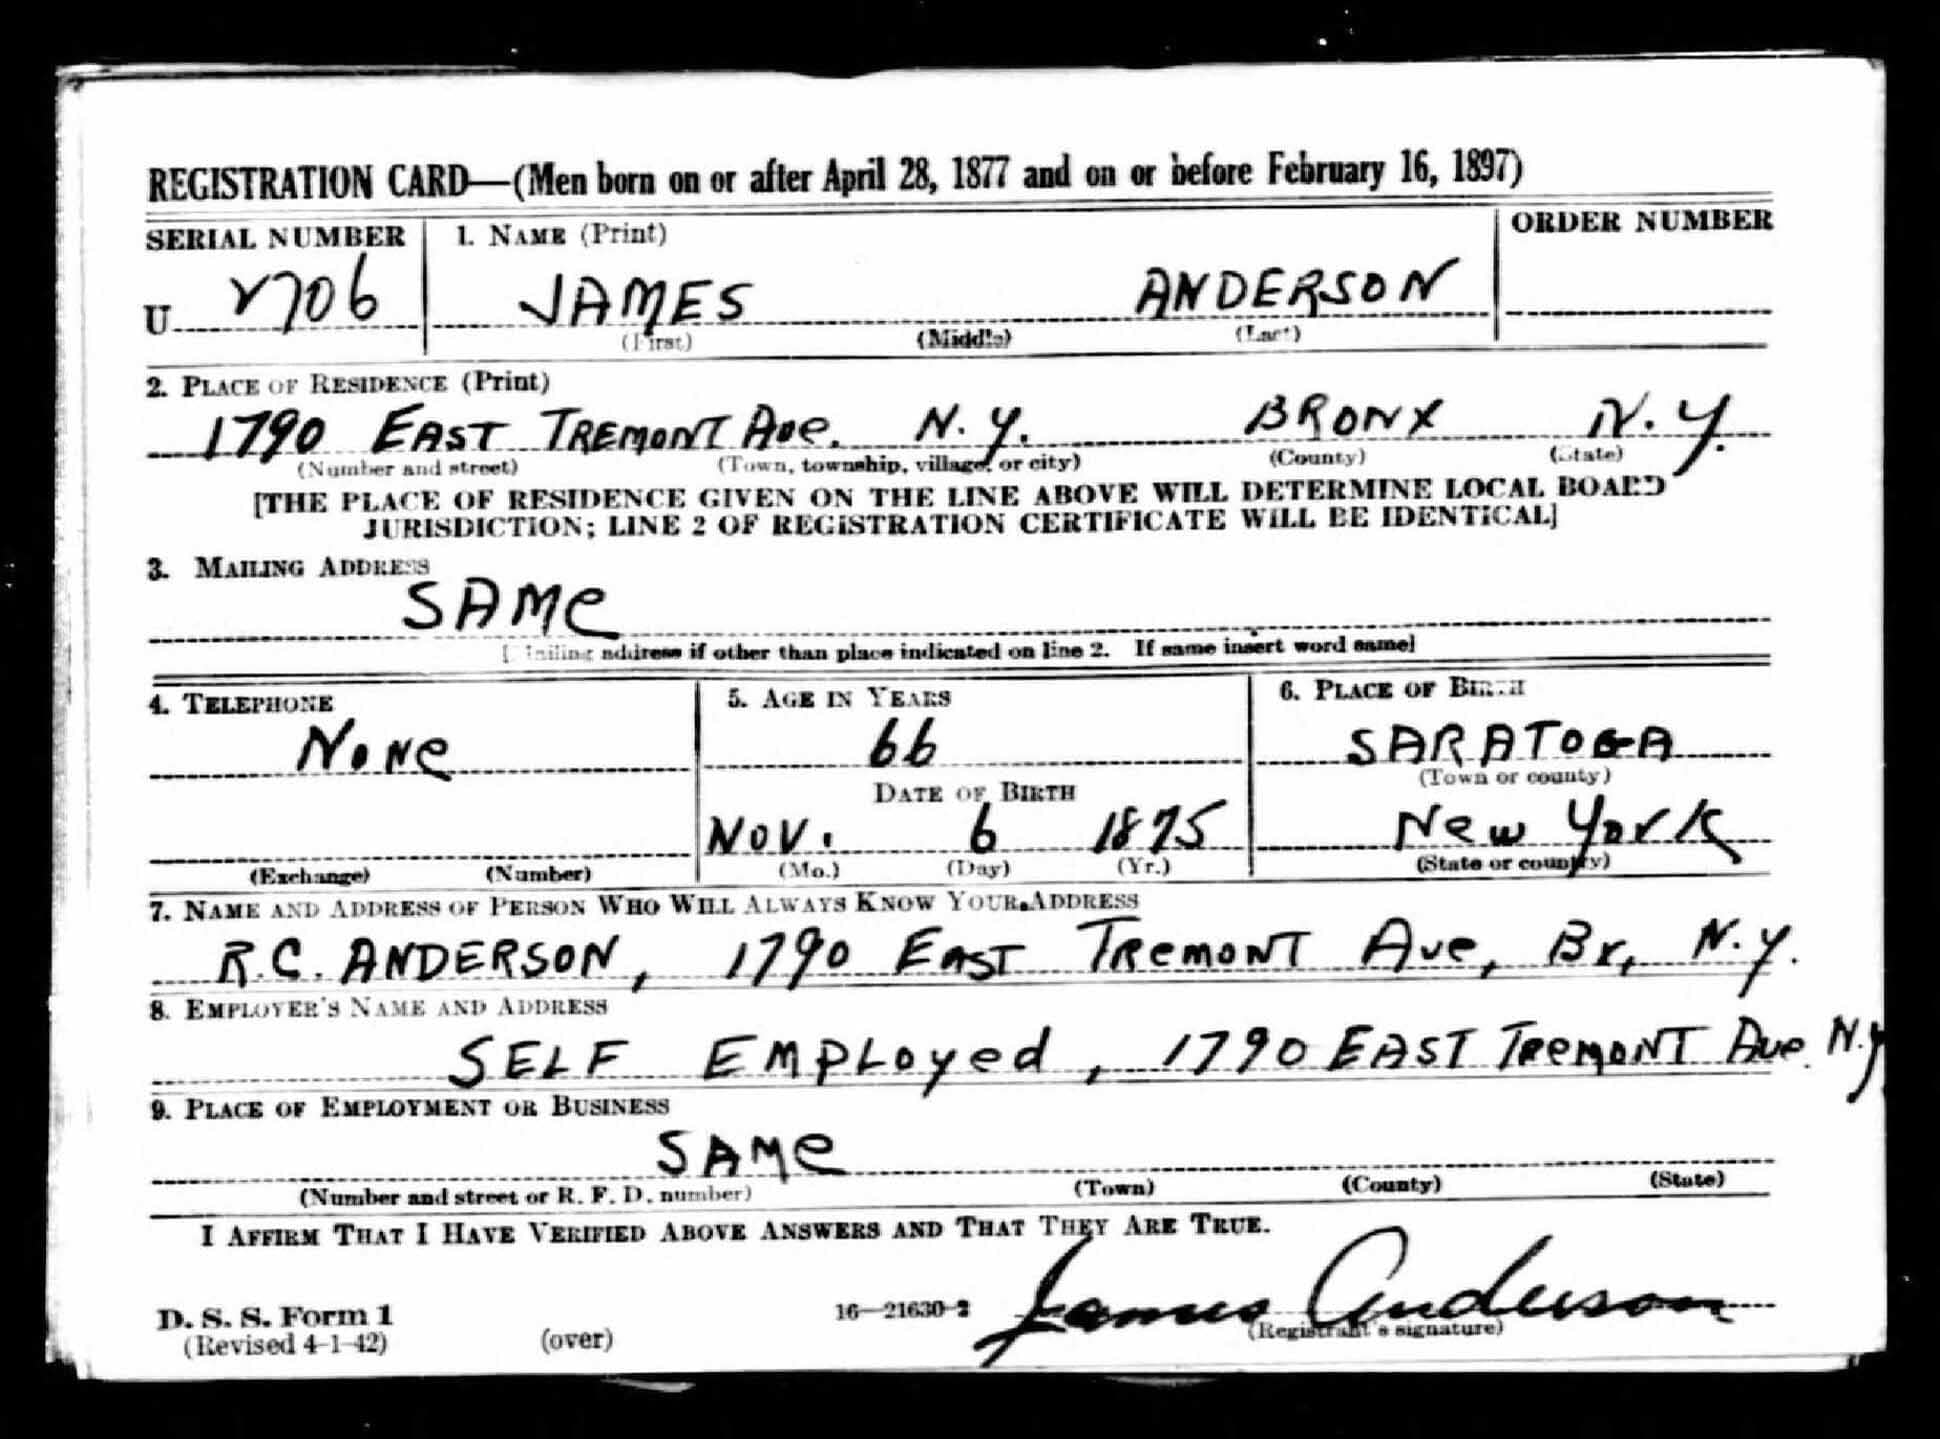 REGISTRATION CARD—(Men born on or after April 28, 1877 and on or before February 16, 1897)
SERIAL NUMBER 1. NAME (Print) ORDER NUMBER
U 2706 JAMES ANDERSON
(First) (Middle) (Last)
2. PLACE OF RESIDENCE (Print)
1790 EAST TREMONT Ave. N.Y. BRONX N.Y.
(Number and street) (Town, township, village, or city) (County) (State)
[THE PLACE OF RESIDENCE GIVEN ON THE LINE ABOVE WILL DETERMINE LOCAL BOARD
JURISDICTION; LINE 2 OF REGISTRATION CERTIFICATE WILL BE IDENTICAL]
3. MAILING ADDRESS
SAMe
[Mailing address if other than place indicated on line 2. If same insert word same]
4. TELEPHONE 5. AGE IN YEARS 6. PLACE OF BIRTH
NoNe 66 SARATOGA
(Town or county)
DATE OF BIRTH
Nov. 6 1875 New York
(Exchange) (Number) (Mo.) (Day) (Yr.) (State or country)
7. NAME AND ADDRESS OF PERSON WHO WILL ALWAYS KNOW YOUR ADDRESS
R.C. ANDERSON, 1790 EAST TREMONT Ave, Bx, N.Y.
8. EMPLOYER'S NAME AND ADDRESS
SELF EMPLoyed, 1790 EAST TReMONT Ave. N.Y.
9. PLACE OF EMPLOYMENT OR BUSINESS
SAMe
(Number and street or R. F. D. number) (Town) (County) (State)
I AFFIRM THAT I HAVE VERIFIED ABOVE ANSWERS AND THAT THEY ARE TRUE.
James Anderson
D. S. S. Form 1 16—21630-2 (Registrant's signature)
(Revised 4-1-42) (over)